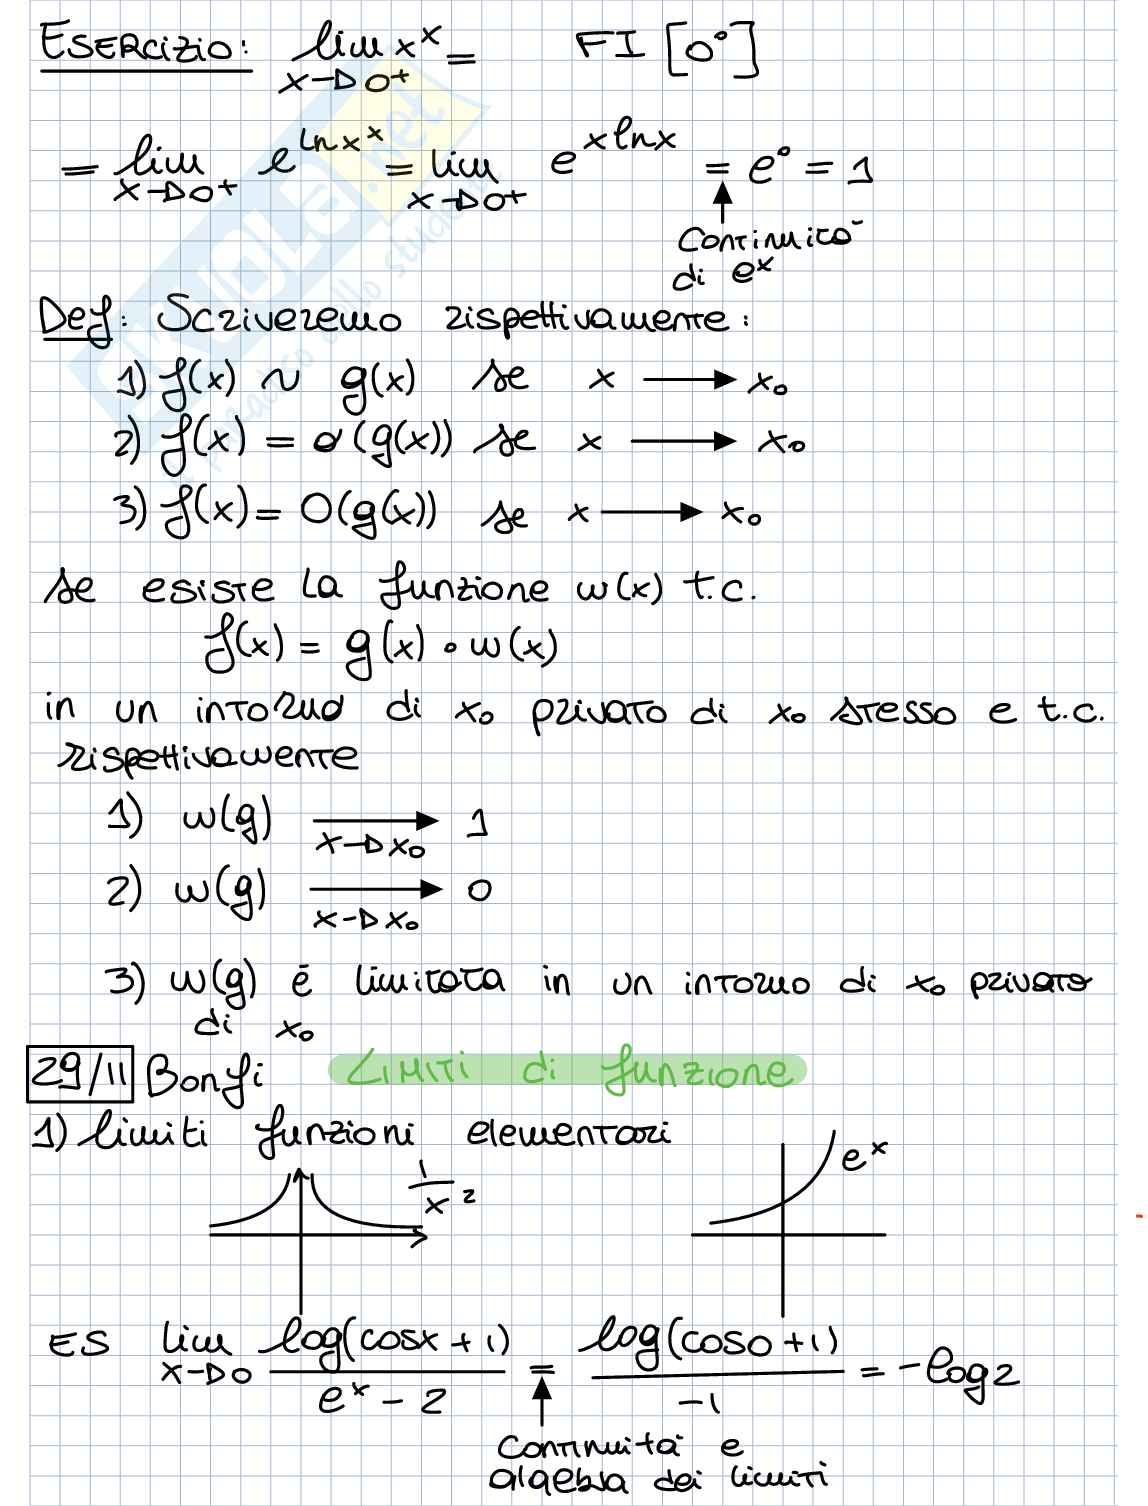 Esercizio: lim x→0+ x^x = FI [0°]
= lim x→0+ e^(ln x^x) = lim x→0+ e^(x ln x) = e° = 1
Continuità
di e^x
Def: Scriveremo rispettivamente:
1) f(x) ~ g(x) se x → x₀
2) f(x) = o(g(x)) se x → x₀
3) f(x) = O(g(x)) se x → x₀
se esiste la funzione w(x) t.c.
f(x) = g(x) • w(x)
in un intorno di x₀ privato di x₀ stesso e t.c.
rispettivamente
1) w(g) → x→x₀ 1
2) w(g) → x→x₀ 0
3) w(g) è limitata in un intorno di x₀ privato
di x₀
29/11 Bonfi Limiti di funzione
1) limiti funzioni elementari
1/x² e^x
ES lim x→0 log(cosx + 1)/(e^x - 2) = log(cos0 + 1)/-1 = -log2
Continuità e
algebra dei limiti
SKUOLA.net